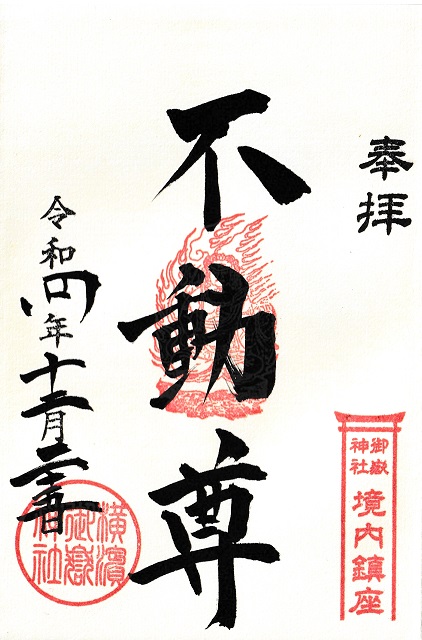 奉拝
御嶽
神社
境内鎮座
不動尊
令和四年十二月二十五日
横濱
御嶽
神社